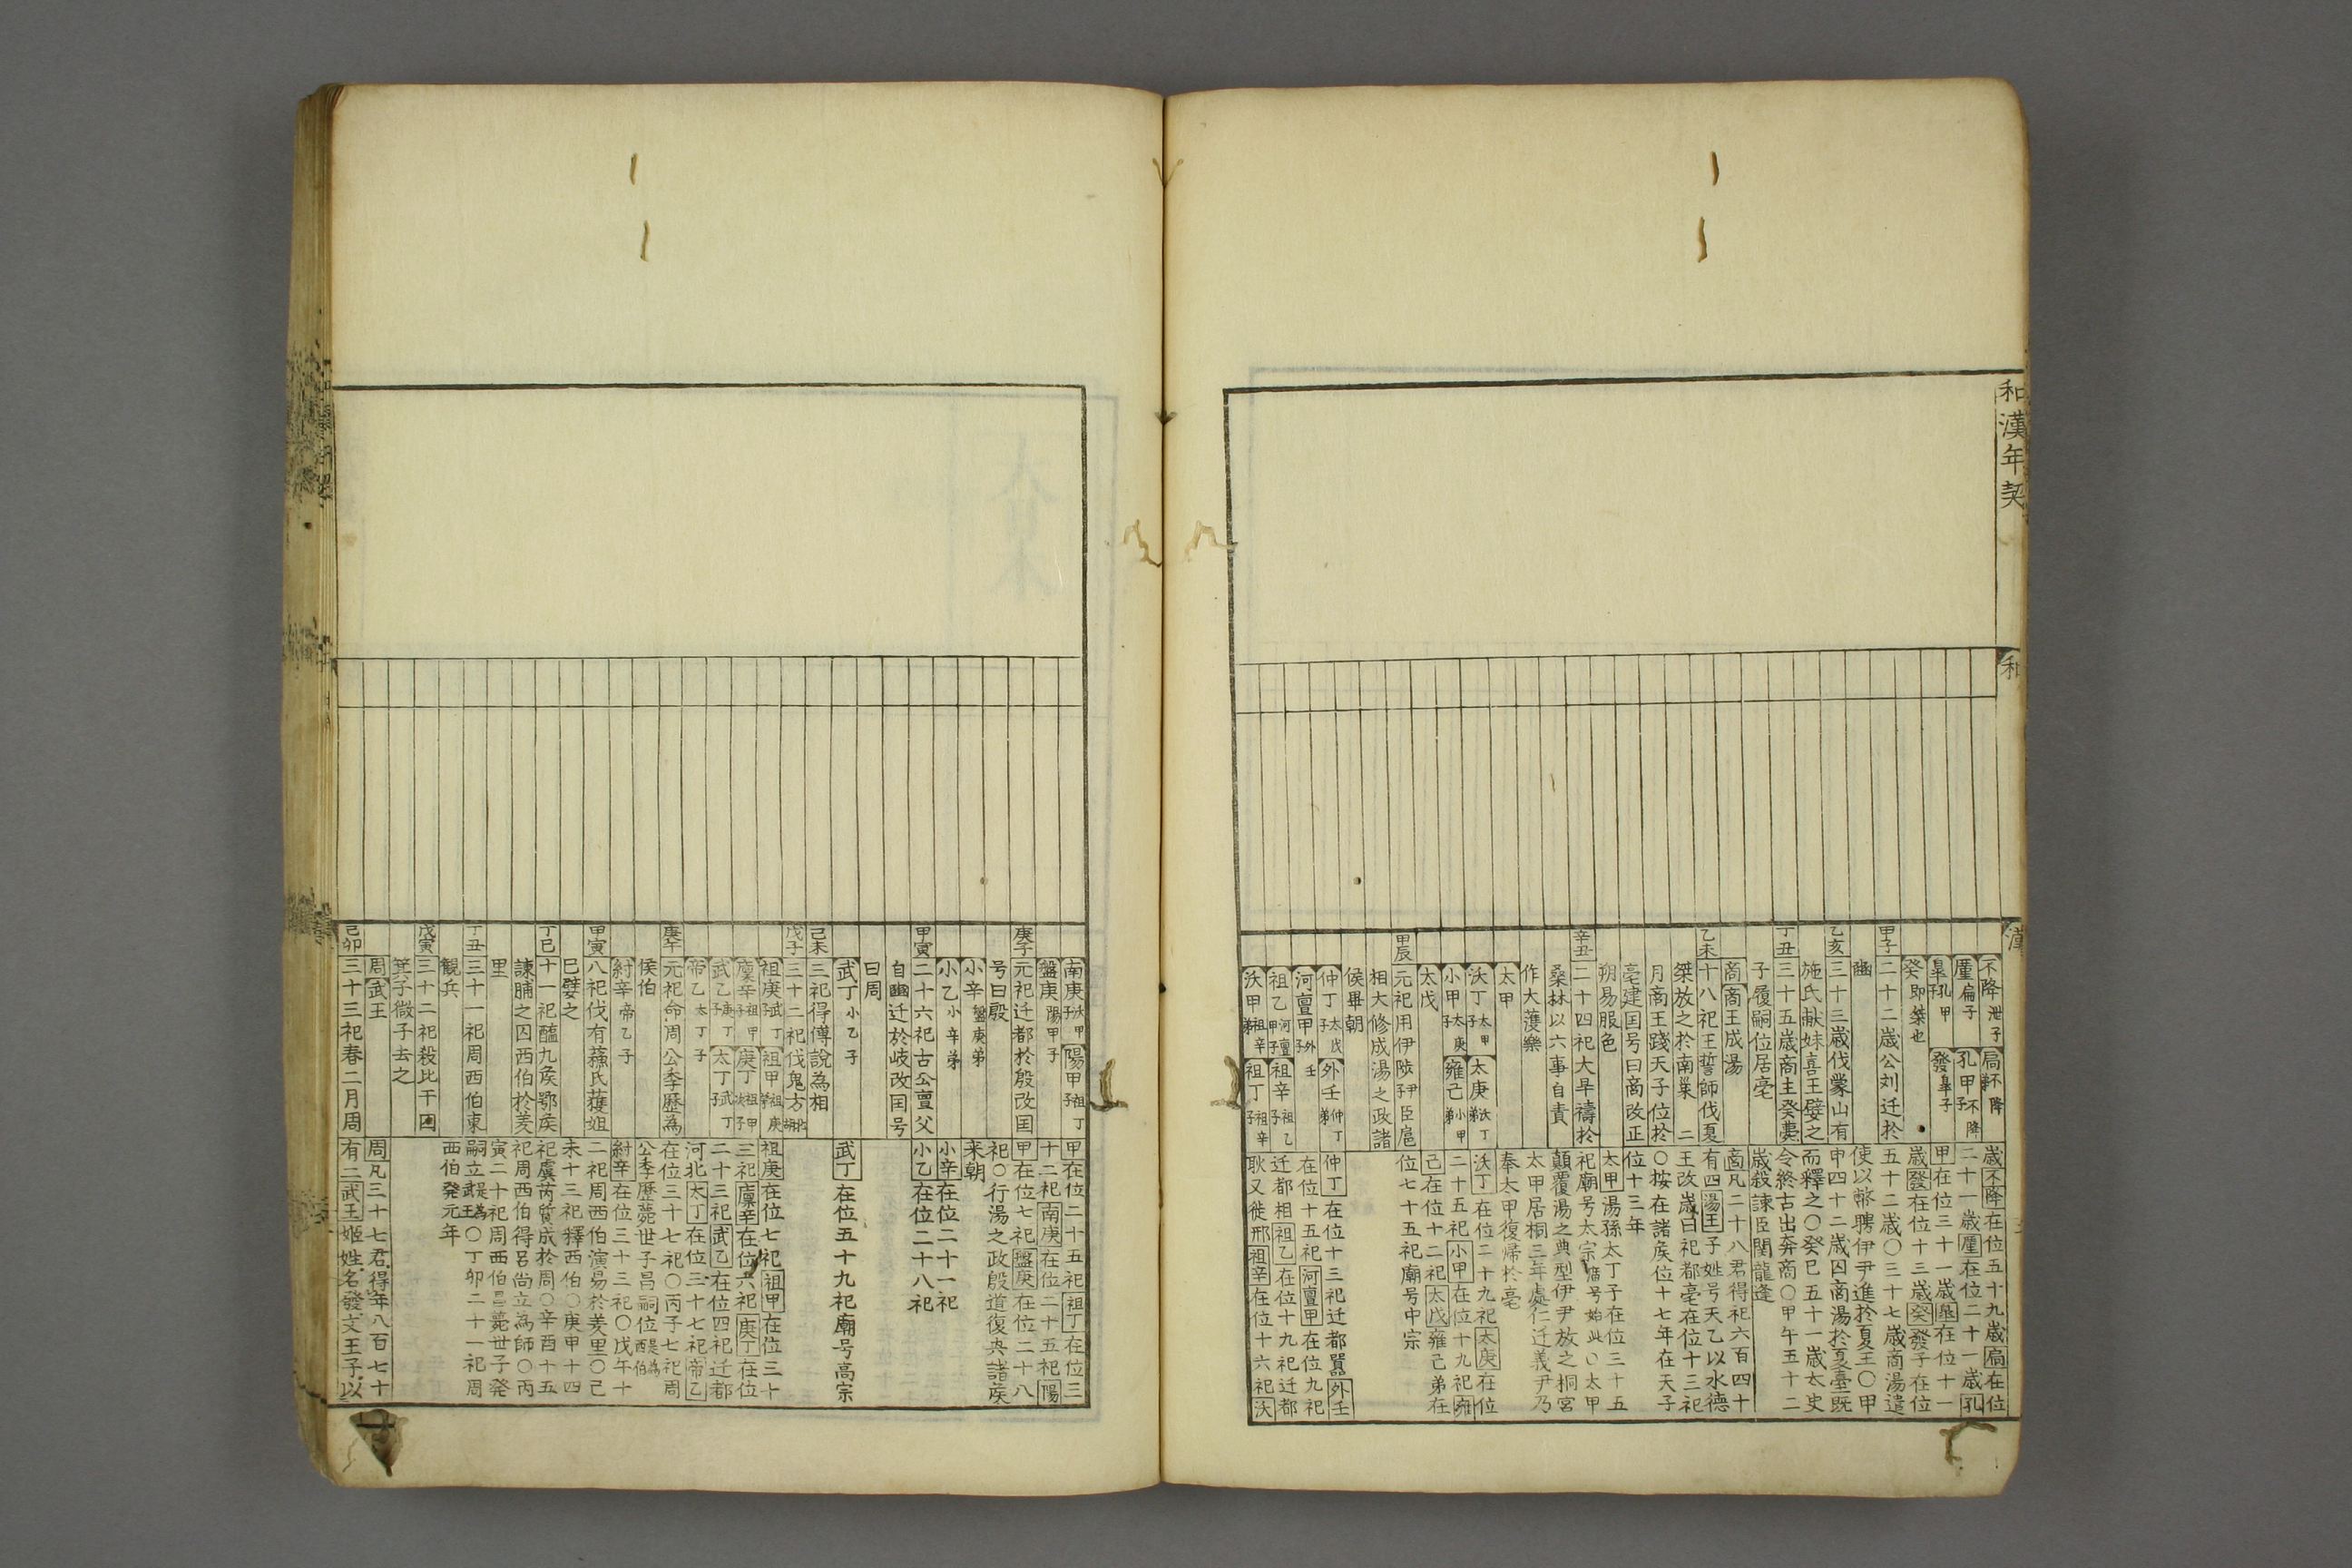 和漢年契
和
漢
不降泄子 扃不降弟
厪扁子 孔甲不降子
皐孔甲子 發皐子
癸即桀也
甲子 二十二歳公刘迁於
豳
乙亥 三十三歳伐蒙山有
施氏献妹喜王嬖之
丁丑 三十五歳商主癸薨
子履嗣位居亳
商 商王成湯
乙未 十八祀王誓師伐夏
桀放之於南巣 二
月商王踐天子位於
亳建国号曰商改正
朔易服色
辛丑 二十四祀大旱禱於
桑林以六事自責
作大䕶樂
太甲
沃丁太甲子 太庚沃丁弟
小甲太庚子 雍己小甲弟
太戊
甲辰 元祀用伊陟伊尹子臣扈
相大修成湯之政諸
侯畢朝
仲丁太戊子 外壬仲丁弟
河亶甲外壬子
祖乙河亶甲子 祖辛祖乙子
沃甲祖辛弟 祖丁祖辛子
歳不降在位五十九歳扃在位
二十一歳厪在位二十一歳孔
甲在位三十一歳皐在位十一
歳發在位十三歳癸發子在位
五十二歳〇三十七歳商湯遣
使以幣聘伊尹進於夏王〇甲
申四十二歳囚商湯於夏臺既
而釋之〇癸巳五十一歳太史
令終古出奔商〇甲午五十二
歳殺諫臣関龍逄
商凡二十八君得祀六百四十
有四湯王子姓号天乙以水德
王改歳曰祀都亳在位十三祀
〇按在諸矦位十七年在天子
位十三年
太甲湯孫太丁子在位三十五
祀廟号太宗廟号始此〇太甲
顛覆湯之典型伊尹放之桐宮
太甲居桐三年處仁迁義尹乃
奉太甲復帰於亳
沃丁在位二十九祀太庚在位
二十五祀小甲在位十九祀雍
己在位十二祀太戊雍己弟在
位七十五祀廟号中宗
仲丁在位十三祀迁都囂外壬
在位十五祀河亶甲在位九祀
迁都相祖乙在位十九祀迁都
耿又徙邢祖辛在位十六祀沃
南庚沃甲子 陽甲祖丁子
盤庚陽甲子
庚子 元祀迁都於殷改国
号曰殷
小辛盤庚弟
小乙小辛弟
甲寅 二十六祀古公亶父
自豳迁於岐改国号
曰周
武丁小乙子
己未 三祀得傅說為相
戊子 三十二祀伐鬼方北胡
祖庚武丁子 祖甲祖庚弟
廩辛祖甲子 庚丁祖甲次子
武乙庚丁子 太丁武丁子
帝乙太丁子
庚午 元祀命周公季歴為
侯伯
紂辛帝乙子
甲寅 八祀伐有蘓氏獲妲
己嬖之
丁巳 十一祀醢九矦鄂矦
諫脯之囚西伯於羑
里
丁丑 三十一祀周西伯東
観兵
戊寅 三十二祀殺比干囚
箕子微子去之
周 武王
己卯 三十三祀春二月周
甲在位二十五祀祖丁在位三
十二祀南庚在位二十五祀陽
甲在位七祀盤庚在位二十八
祀〇行湯之政殷道復央諸矦
来朝
小辛在位二十一祀
小乙在位二十八祀
武丁在位五十九祀廟号高宗
祖庚在位七祀祖甲在位三十
三祀廩辛在位六祀庚丁在位
二十三祀武乙在位四祀迁都
河北太丁在位三十七祀帝乙
在位三十七祀〇丙子七祀周
公季歴薨世子昌嗣位是為西伯
紂辛在位三十三祀〇戊午十
二祀周西伯演易於羑里〇己
未十三祀釋西伯〇庚甲十四
祀虞芮質成於周〇辛酉十五
祀周西伯得呂尚立為師〇丙
寅二十祀周西伯昌薨世子発
嗣立是為武王〇丁卯二十一祀周
西伯発元年
周凡三十七君得年八百七十
有二武王姬姓名發文王子以